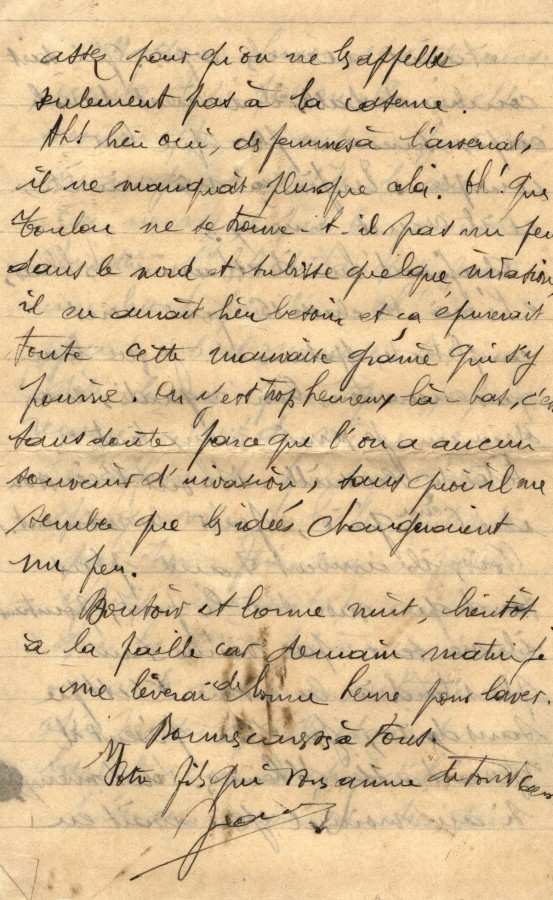 assez pour qu'on ne les appelle
seulement pas à la caserne.
Ah! bien oui, des femmes à l'arsenal,
il ne manquait plus que cela. Oh! que
Toulon ne se trouve-t-il pas un peu
dans le nord et subisse quelque invasion
il en aurait bien besoin et ça épurerait
toute cette mauvaise graine qui s'y
pourrie. On y est trop heureux là-bas, c'est
sans doute parce que l'on a aucun
souvenir d'invasion, sans quoi il me
semble que les idées changeraient
un peu.
Bonsoir et bonne nuit, bientôt
à la paille car demain matin je
me lèverai de bonne heure pour laver.
Bonnes caresses à tous.
Votre fils qui vous aime de tout cœur